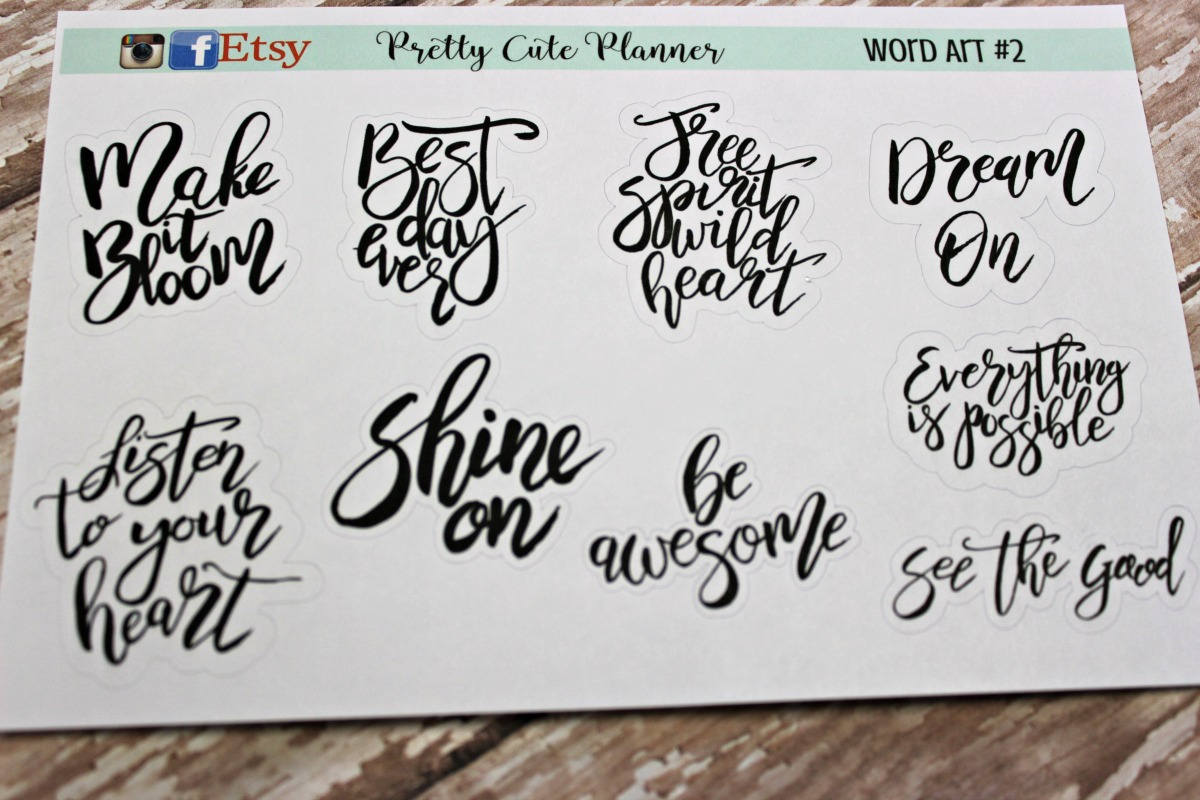 f Etsy Pretty Cute Planner WORD ART #2
Make
it
Bloom
Best
day
ever
Free
spirit
wild
heart
Dream
On
Listen
to your
heart
Shine
on
be
awesome
Everything
is possible
See the Good